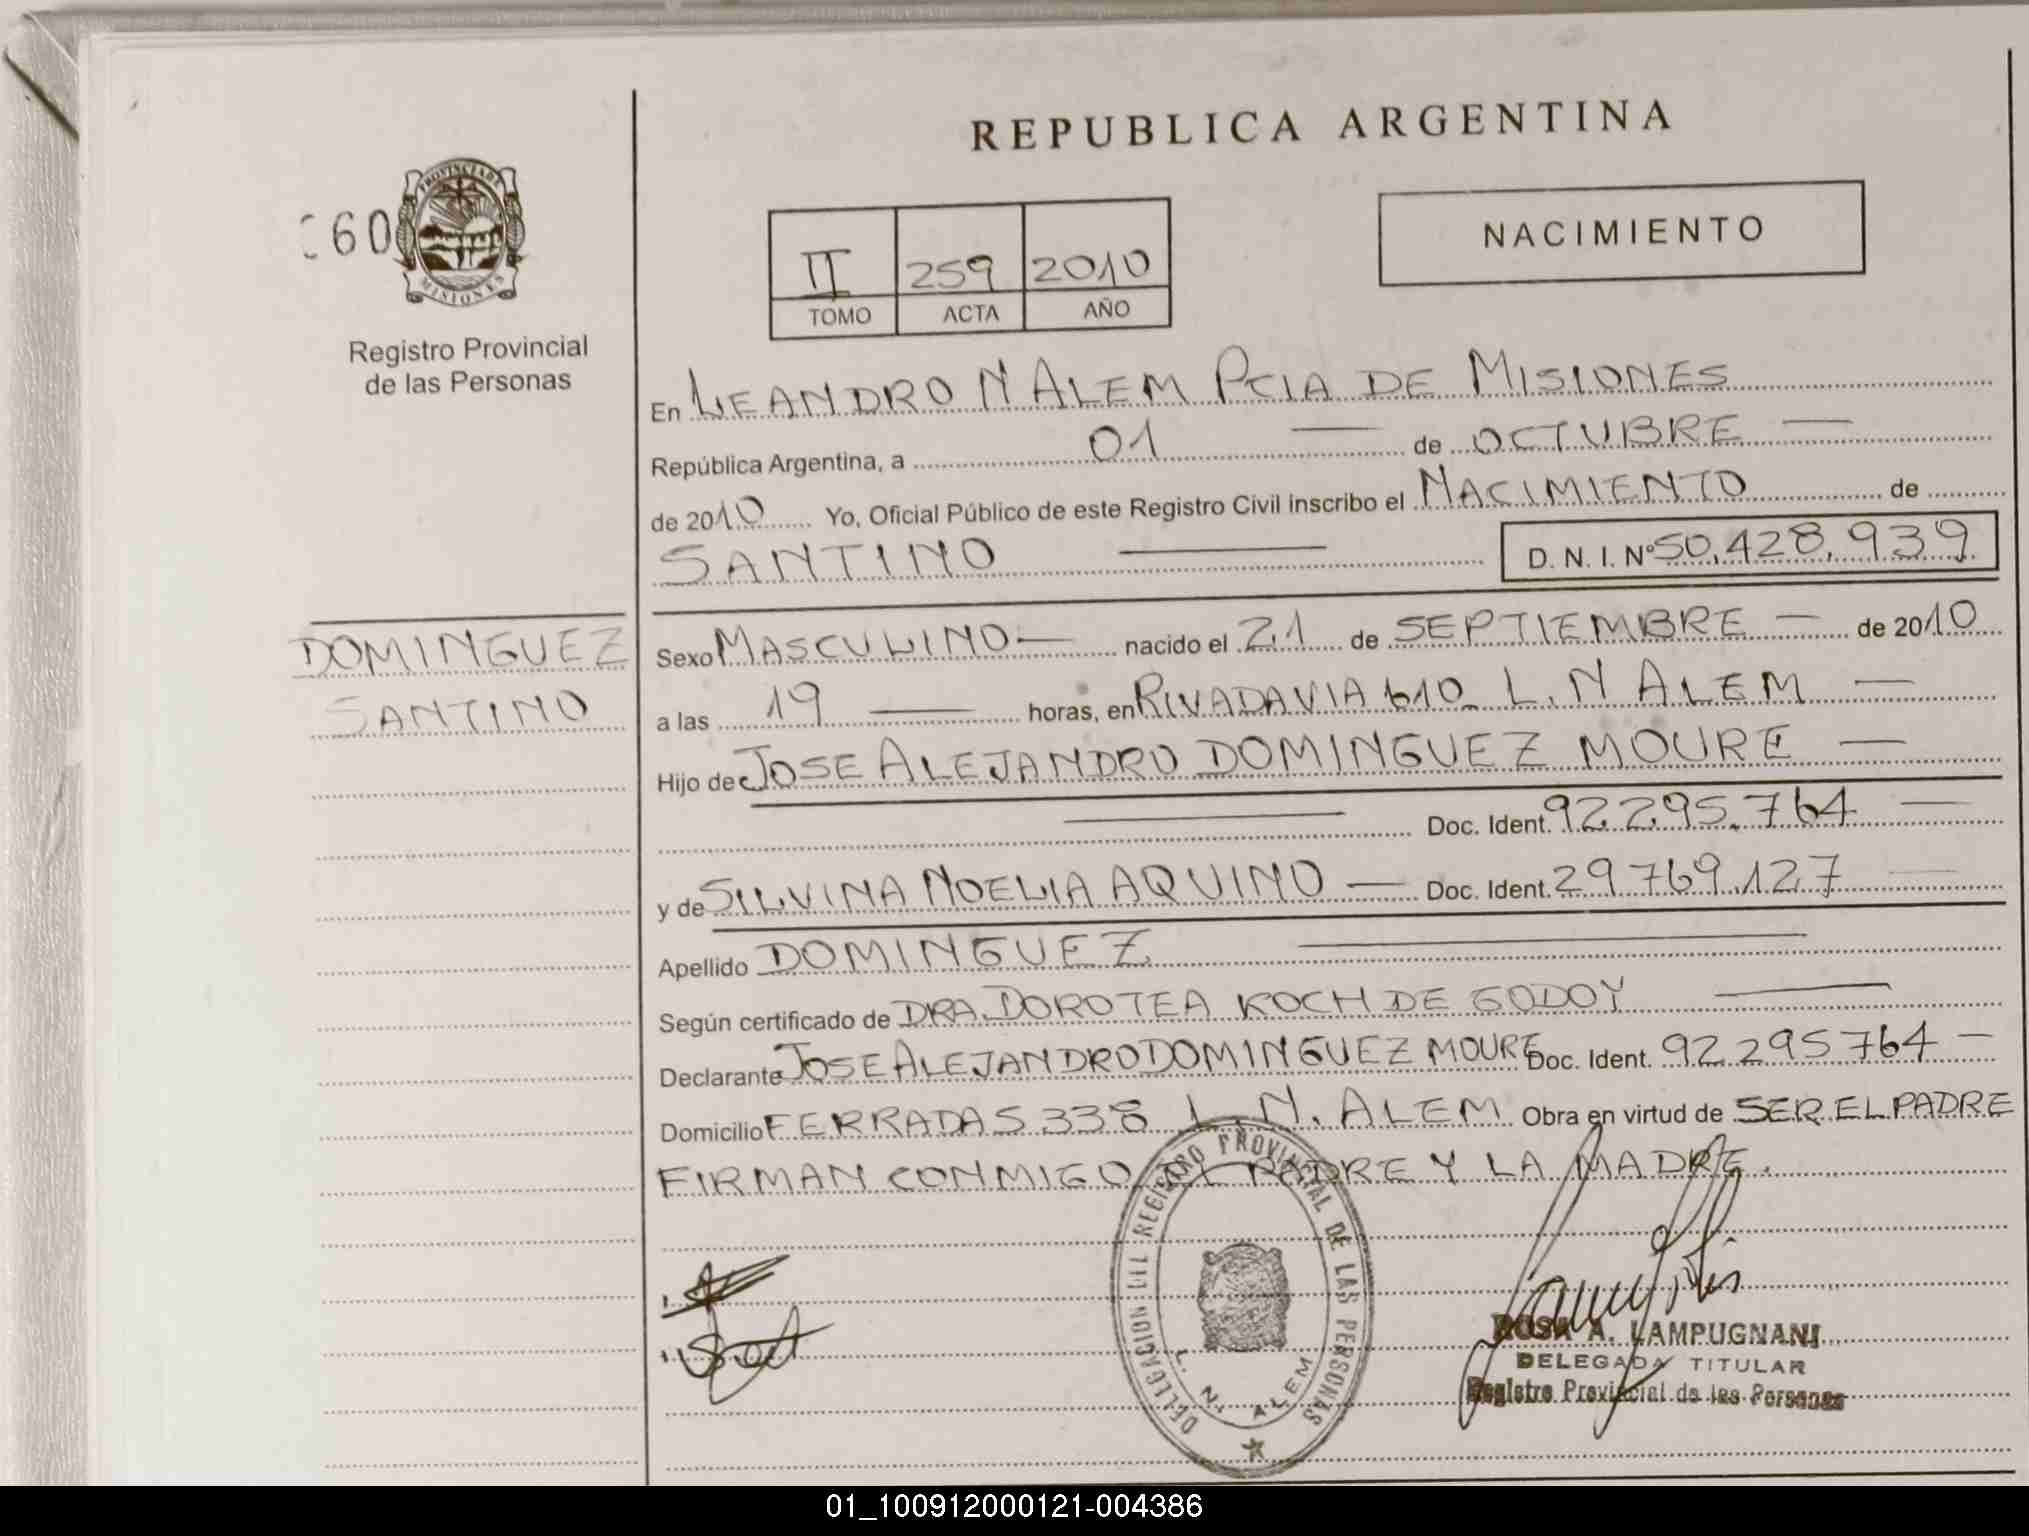 REPUBLICA ARGENTINA
60
PROVINCIA DE
MISIONES
Registro Provincial
de las Personas
II 259 2010
TOMO ACTA AÑO
NACIMIENTO
En LEANDRO N ALEM PCIA DE MISIONES
República Argentina, a 01 — de OCTUBRE —
de 2010 Yo, Oficial Público de este Registro Civil inscribo el NACIMIENTO de
SANTINO — D. N. I. Nº 50.428.939
DOMINGUEZ
SANTINO
Sexo MASCULINO — nacido el 21 de SEPTIEMBRE — de 2010
a las 19 — horas, en RIVADAVIA 610 L. N ALEM —
Hijo de JOSE ALEJANDRO DOMINGUEZ MOURE —
— Doc. Ident. 92.295.764 —
y de SILVINA NOELIA AQUINO — Doc. Ident. 29769.127 —
Apellido DOMINGUEZ —
Según certificado de DRA. DOROTEA KOCH DE GODOY —
Declarante JOSE ALEJANDRO DOMINGUEZ MOURE Doc. Ident. 92295764 —
Domicilio FERRADAS 338 L. N. ALEM Obra en virtud de SER EL PADRE
FIRMAN CONMIGO EL PADRE Y LA MADRE.
DELEGACION DEL REGISTRO PROVINCIAL DE LAS PERSONAS
L. N. ALEM
ROSA A. LAMPUGNANI
DELEGADA TITULAR
Registro Provincial de las Personas
01_100912000121-004386